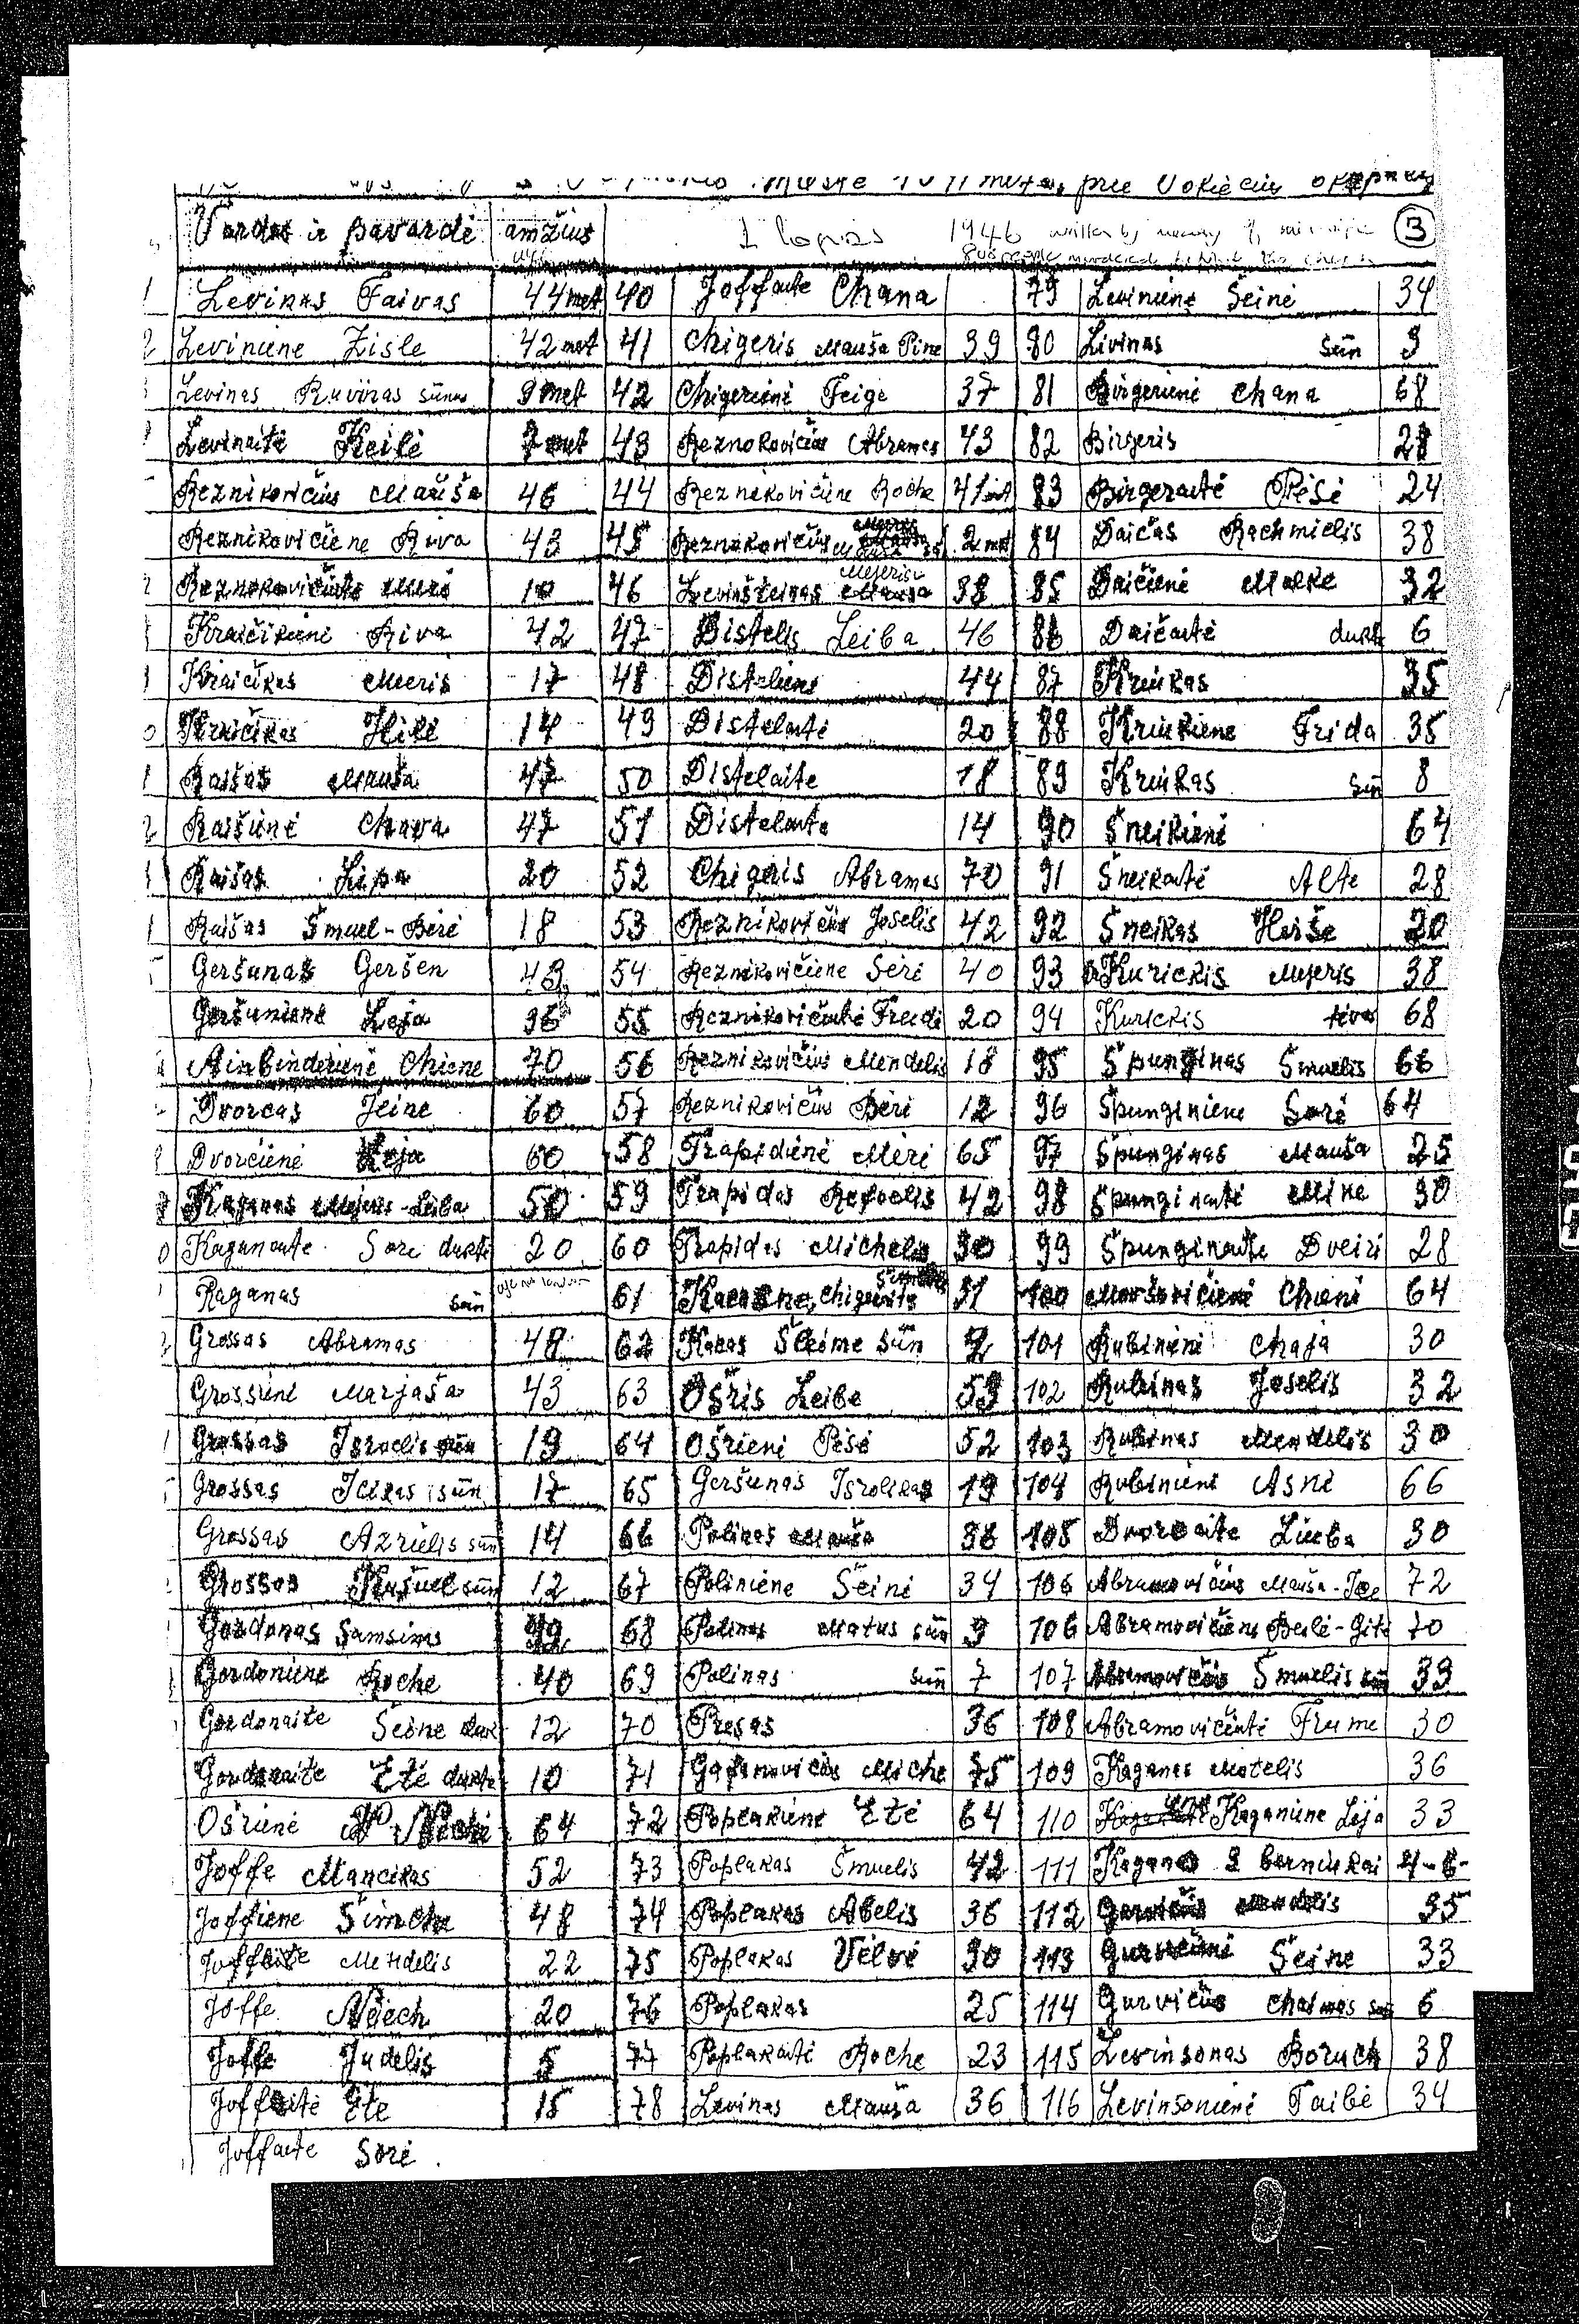 mieste 1941 metais prie Vokiečių
Vardas ir pavardė amžius 1 lapas 1946 written by ③
1 Levinas Faivas 44 met 40 Joffaite Chana 79 Levinienė Šeinė 34
2 Levinienė Zisle 42 met 41 Chigeris Mauša Pine 39 80 Livinas sūn 9
Levinas Ruvinas sūnus 9 met 42 Chigerienė Feige 37 81 Birgerienė Chana 68
Levinaitė Keilė 7 met 43 Reznokovičius Abramas 43 82 Birgeris 28
Reznikovičius Mauša 46 44 Reznikovičiene Roche 41 83 Birgeraitė Pėsė 24
Reznikovičiene Riva 43 45 Reznikovičius 2 met 84 Daičas Rachmielis 38
Reznikovičiutė 10 46 Levinšteinas Mejeris 38 85 Daičienė Malke 32
Kraičikienė Riva 42 47 Distelis Leiba 46 86 Daičaitė dukte 6
Kraičikas Meeris 17 48 Distelienė 44 87 Kriukas 35
0 Kraičikas Hilė 14 49 Distelaitė 20 88 Kriukiene Frida 35
Raišas Mauša 47 50 Distelaite 18 89 Kriukas sūn 8
2 Raišienė Chava 47 51 Distelaite 14 90 Šneikienė 64
Raišas Lipa 20 52 Chigeris Abramas 70 91 Šneikaitė Alte 28
Raišas Šmuel-Berė 18 53 Reznikovičius Joselis 42 92 Šneikas Herše 20
Geršunas Geršen 43 54 Reznikovičiene Sėrė 40 93 Kurickis Mejeris 38
Geršunienė Leja 36 55 Reznikovičiutė Freidė 20 94 Kurickis tėvas 68
Ainbinderienė Chiene 70 56 Reznikovičius Mendelis 18 95 Špunginas Šmuelis 66
Dvorcas Jeine 60 57 Reznikovičius Berė 12 96 Špunginiene Sorė 64
Dvorcienė Leja 60 58 Trapidienė Mėrė 65 97 Špunginas Mauša 25
Kaganas Mejeris-Leiba 50 59 Trapidas Refoelis 42 98 Špunginaitė Mine 30
0 Kaganaite Sore duktė 20 60 Trapidas Michelis 30 99 Špunginaite Dveirė 28
Kaganas sūn 61 Chigerytė 31 100 Movšovičienė Chienė 64
2 Grossas Abramas 48 62 Kacas Šleime sūn 2 101 Rubinienė Chaja 30
Grossienė Marjaša 43 63 Ošris Leibe 53 102 Rubinas Joselis 32
Grossas Israelis sūn 19 64 Ošrienė Pėsė 52 103 Rubinas Mendelis 30
Grossas Icikas sūn 17 65 Geršunas Isrolikas 19 104 Rubinienė Asnė 66
Grossas Azrielis sūn 14 66 Polinas Mauša 36 105 Dvorcaite Lieba 30
Grossas Kušuel sūn 12 67 Poliniene Šeinė 34 106 Abramovičius Mauša-Jee 72
Gordonas Šamsinas 68 Polinas Matus sūn 9 106 Abramovičienė Beilė-Gitė 70
Gordonienė Roche 40 69 Polinas sūn 7 107 Abramovičius Šmuelis sūn 33
Gordonaite Šeine duk 12 70 Presas 36 108 Abramovičiutė Frume 30
Gordonaite Etė duktė 10 71 Miche 75 109 Kaganas Motelis 36
Ošrienė 64 72 Poplakienė Etė 64 110 Kaganiene Leja 33
Joffe Mancikas 52 73 Poplakas Šmuelis 42 111 Kaganas 2 berniukai 4-6-
Joffiene Šimche 48 74 Poplakas Abelis 36 112 35
Joffaite Mendelis 22 75 Poplakas Velvė 30 113 Šeine 33
Joffe Nėech 20 76 Poplakas 25 114 Gurvičius Chaimas sūn 6
Joffe Judelis 5 77 Poplakaitė Roche 23 115 Levinsonas Boruch 38
Joffaitė Ete 15 78 Levinas Mauša 36 116 Levinsonienė Taibė 34
Joffaite Sorė.